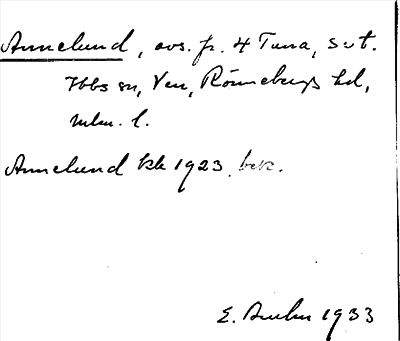 Annelund, avs. fr. 4 Tuna, S:t.
Ibbs sn, Ven, Rönnebergs hd,
mlm. l.
Annelund kk 1923 bek.
E. 1933